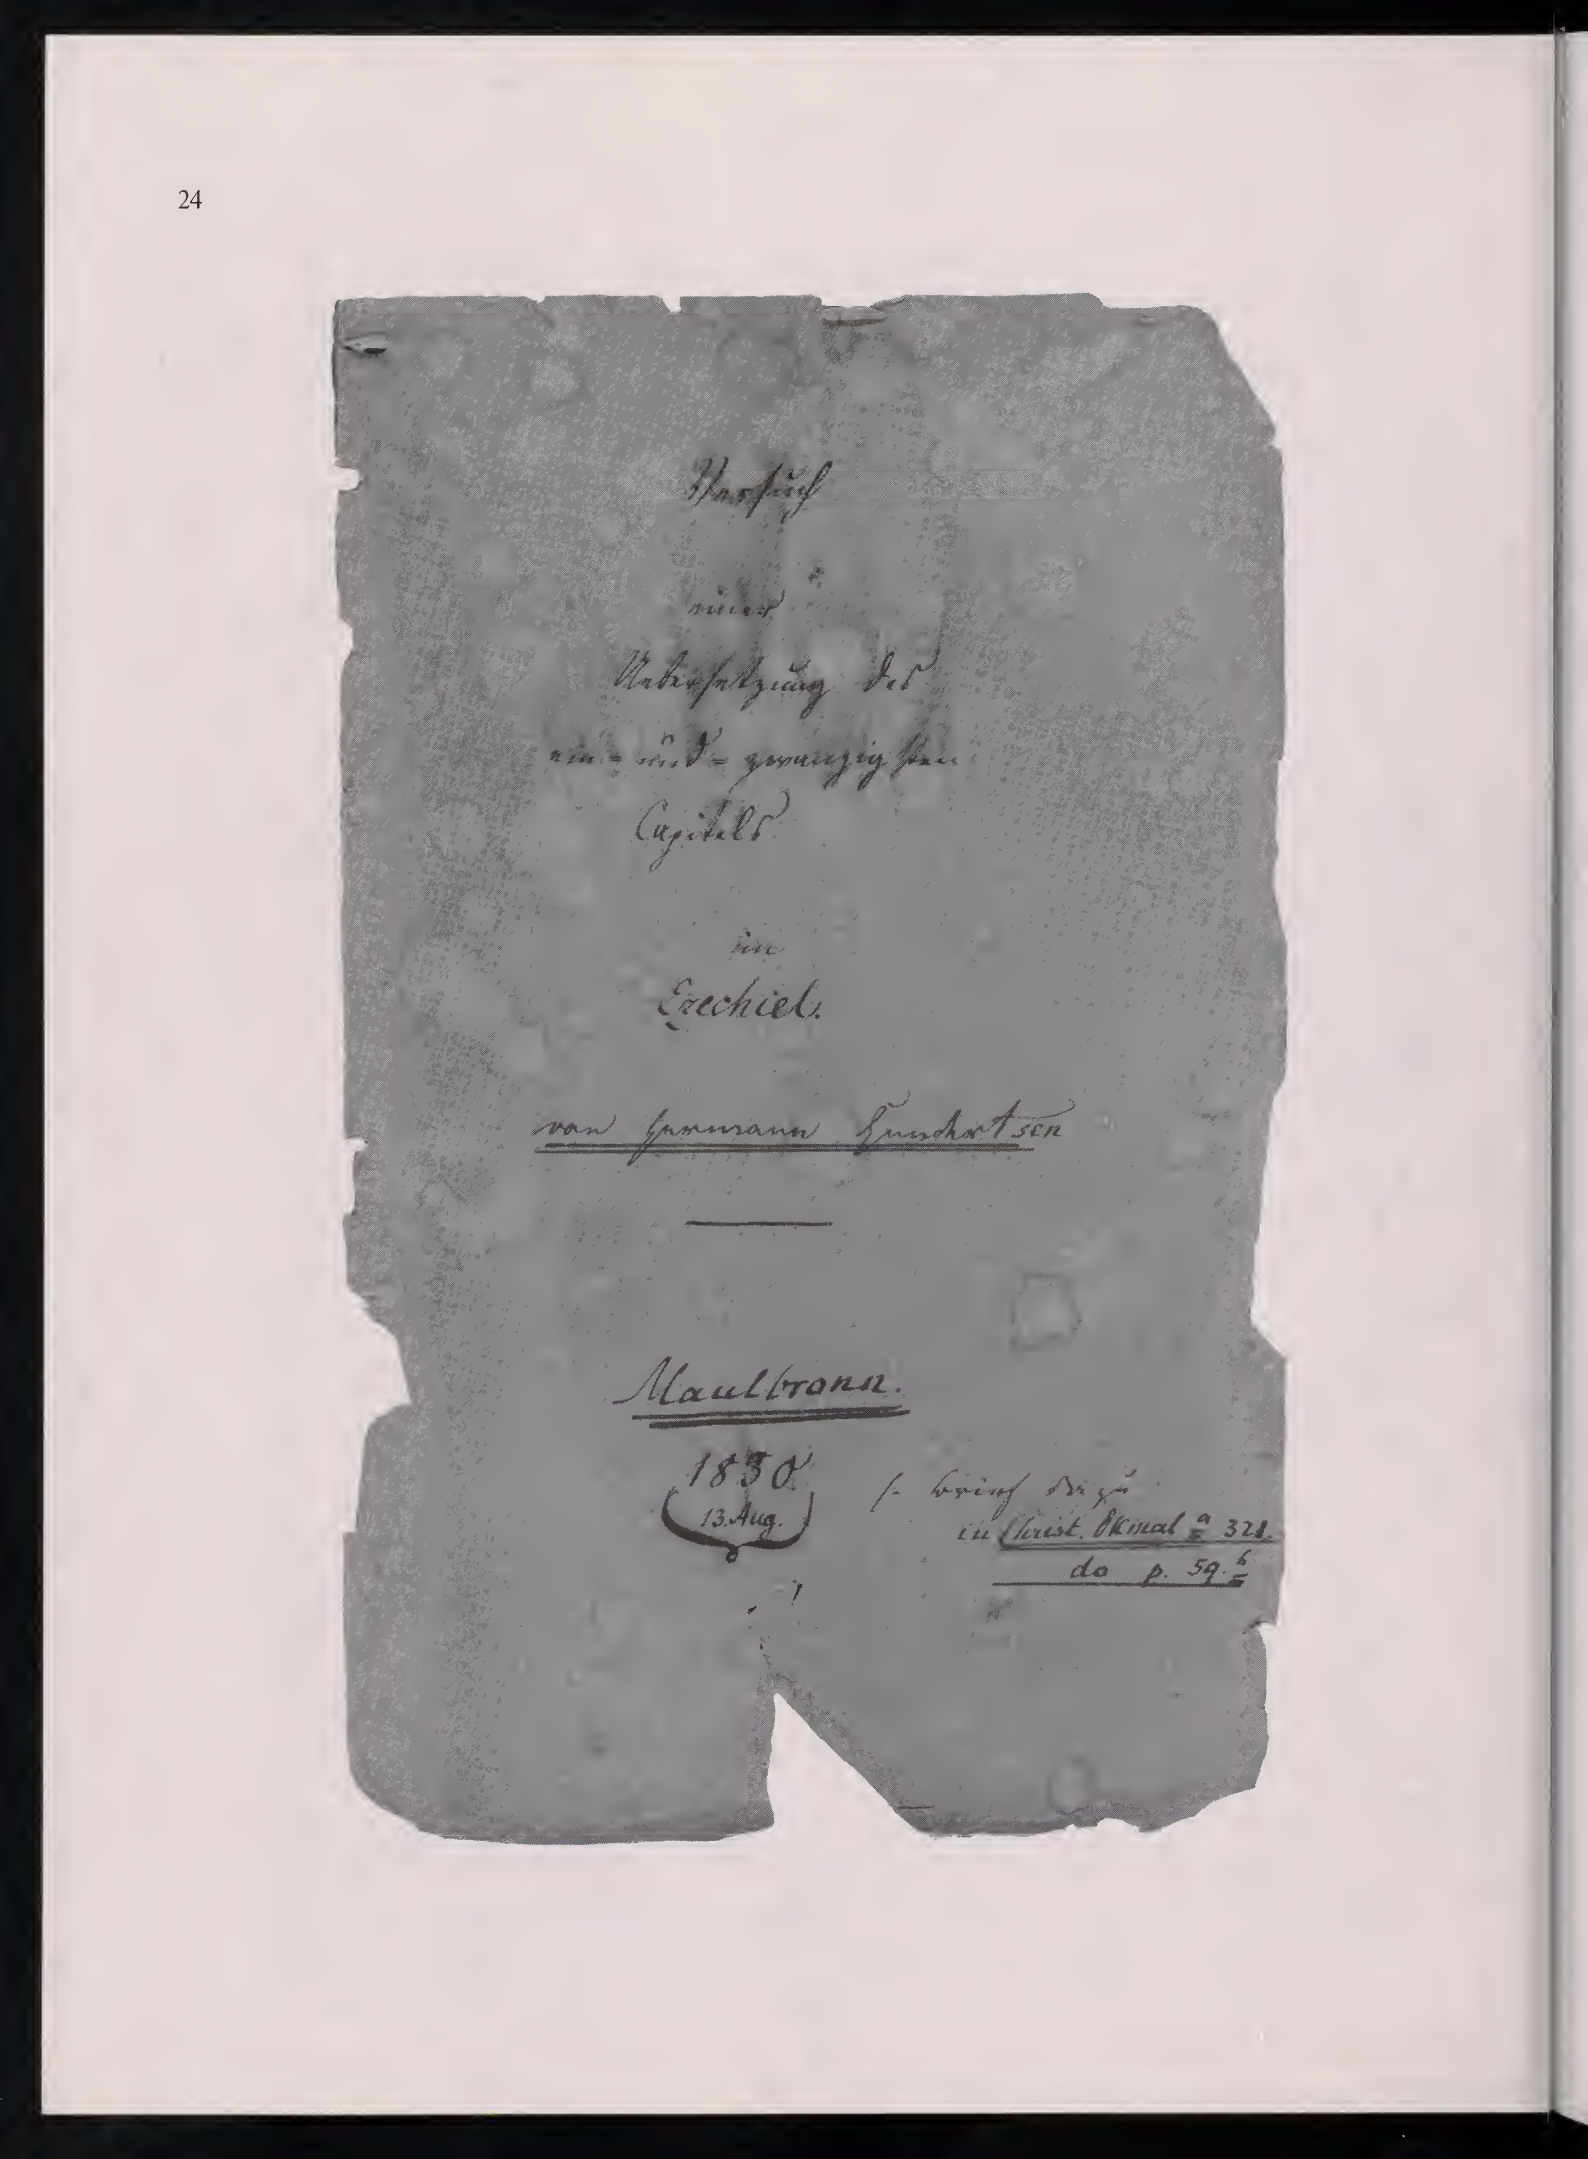 24
Versuch
einer
Uebersetzung des
ein- und- zwanzigsten
Capitels
im
Ezechiel.
von Hermann Gundert sen
Maulbronn.
1830
13. Aug.
s. Brief dazu
in Christ. Dkmal a 321.
do p. 59. b